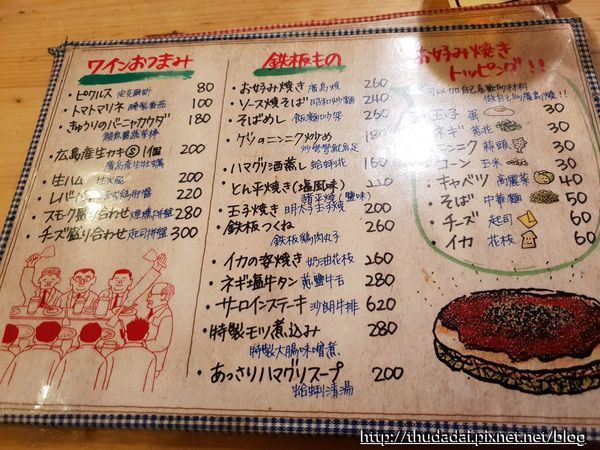 ワインおつまみ
・ピクルス 80
・トマトマリネ 100
・きゅうりのバーニャカウダ 180
・広島産生カキ 1個 200
廣島產生牡蠣
・生ハム 200
・レバー 220
・スモーク盛り合わせ 280
・チーズ盛り合わせ 起司拼盤 300
鉄板もの
・お好み焼き 廣島燒 260
・ソース焼そば 昭和炒麵 240
・そばめし 260
・ゲソのニンニク炒め 180
・ハマグリ酒蒸し 160
・とん平焼き(塩風味)
・玉子焼き 明太子玉子燒 200
・鉄板つくね 260
鉄板鶏肉丸子
・イカの姿焼き 奶油花枝 260
・ネギ塩牛タン 蔥鹽牛舌 280
・サーロインステーキ 沙朗牛排 620
・特製モツ煮込み 280
特製大腸味噌煮
・あっさりハマグリスープ 200
蛤蜊清湯
お好み焼き
トッピング!!
可以加自己喜歡的材料
做自己的廣島燒!
・玉子 蛋 30
・ネギ 30
・ニンニク 蒜頭 30
・コーン 玉米 30
・キャベツ 高麗菜 40
・そば 中華麵 50
・チーズ 起司 60
・イカ 花枝 60
http://thudadai.pixnet.net/blog